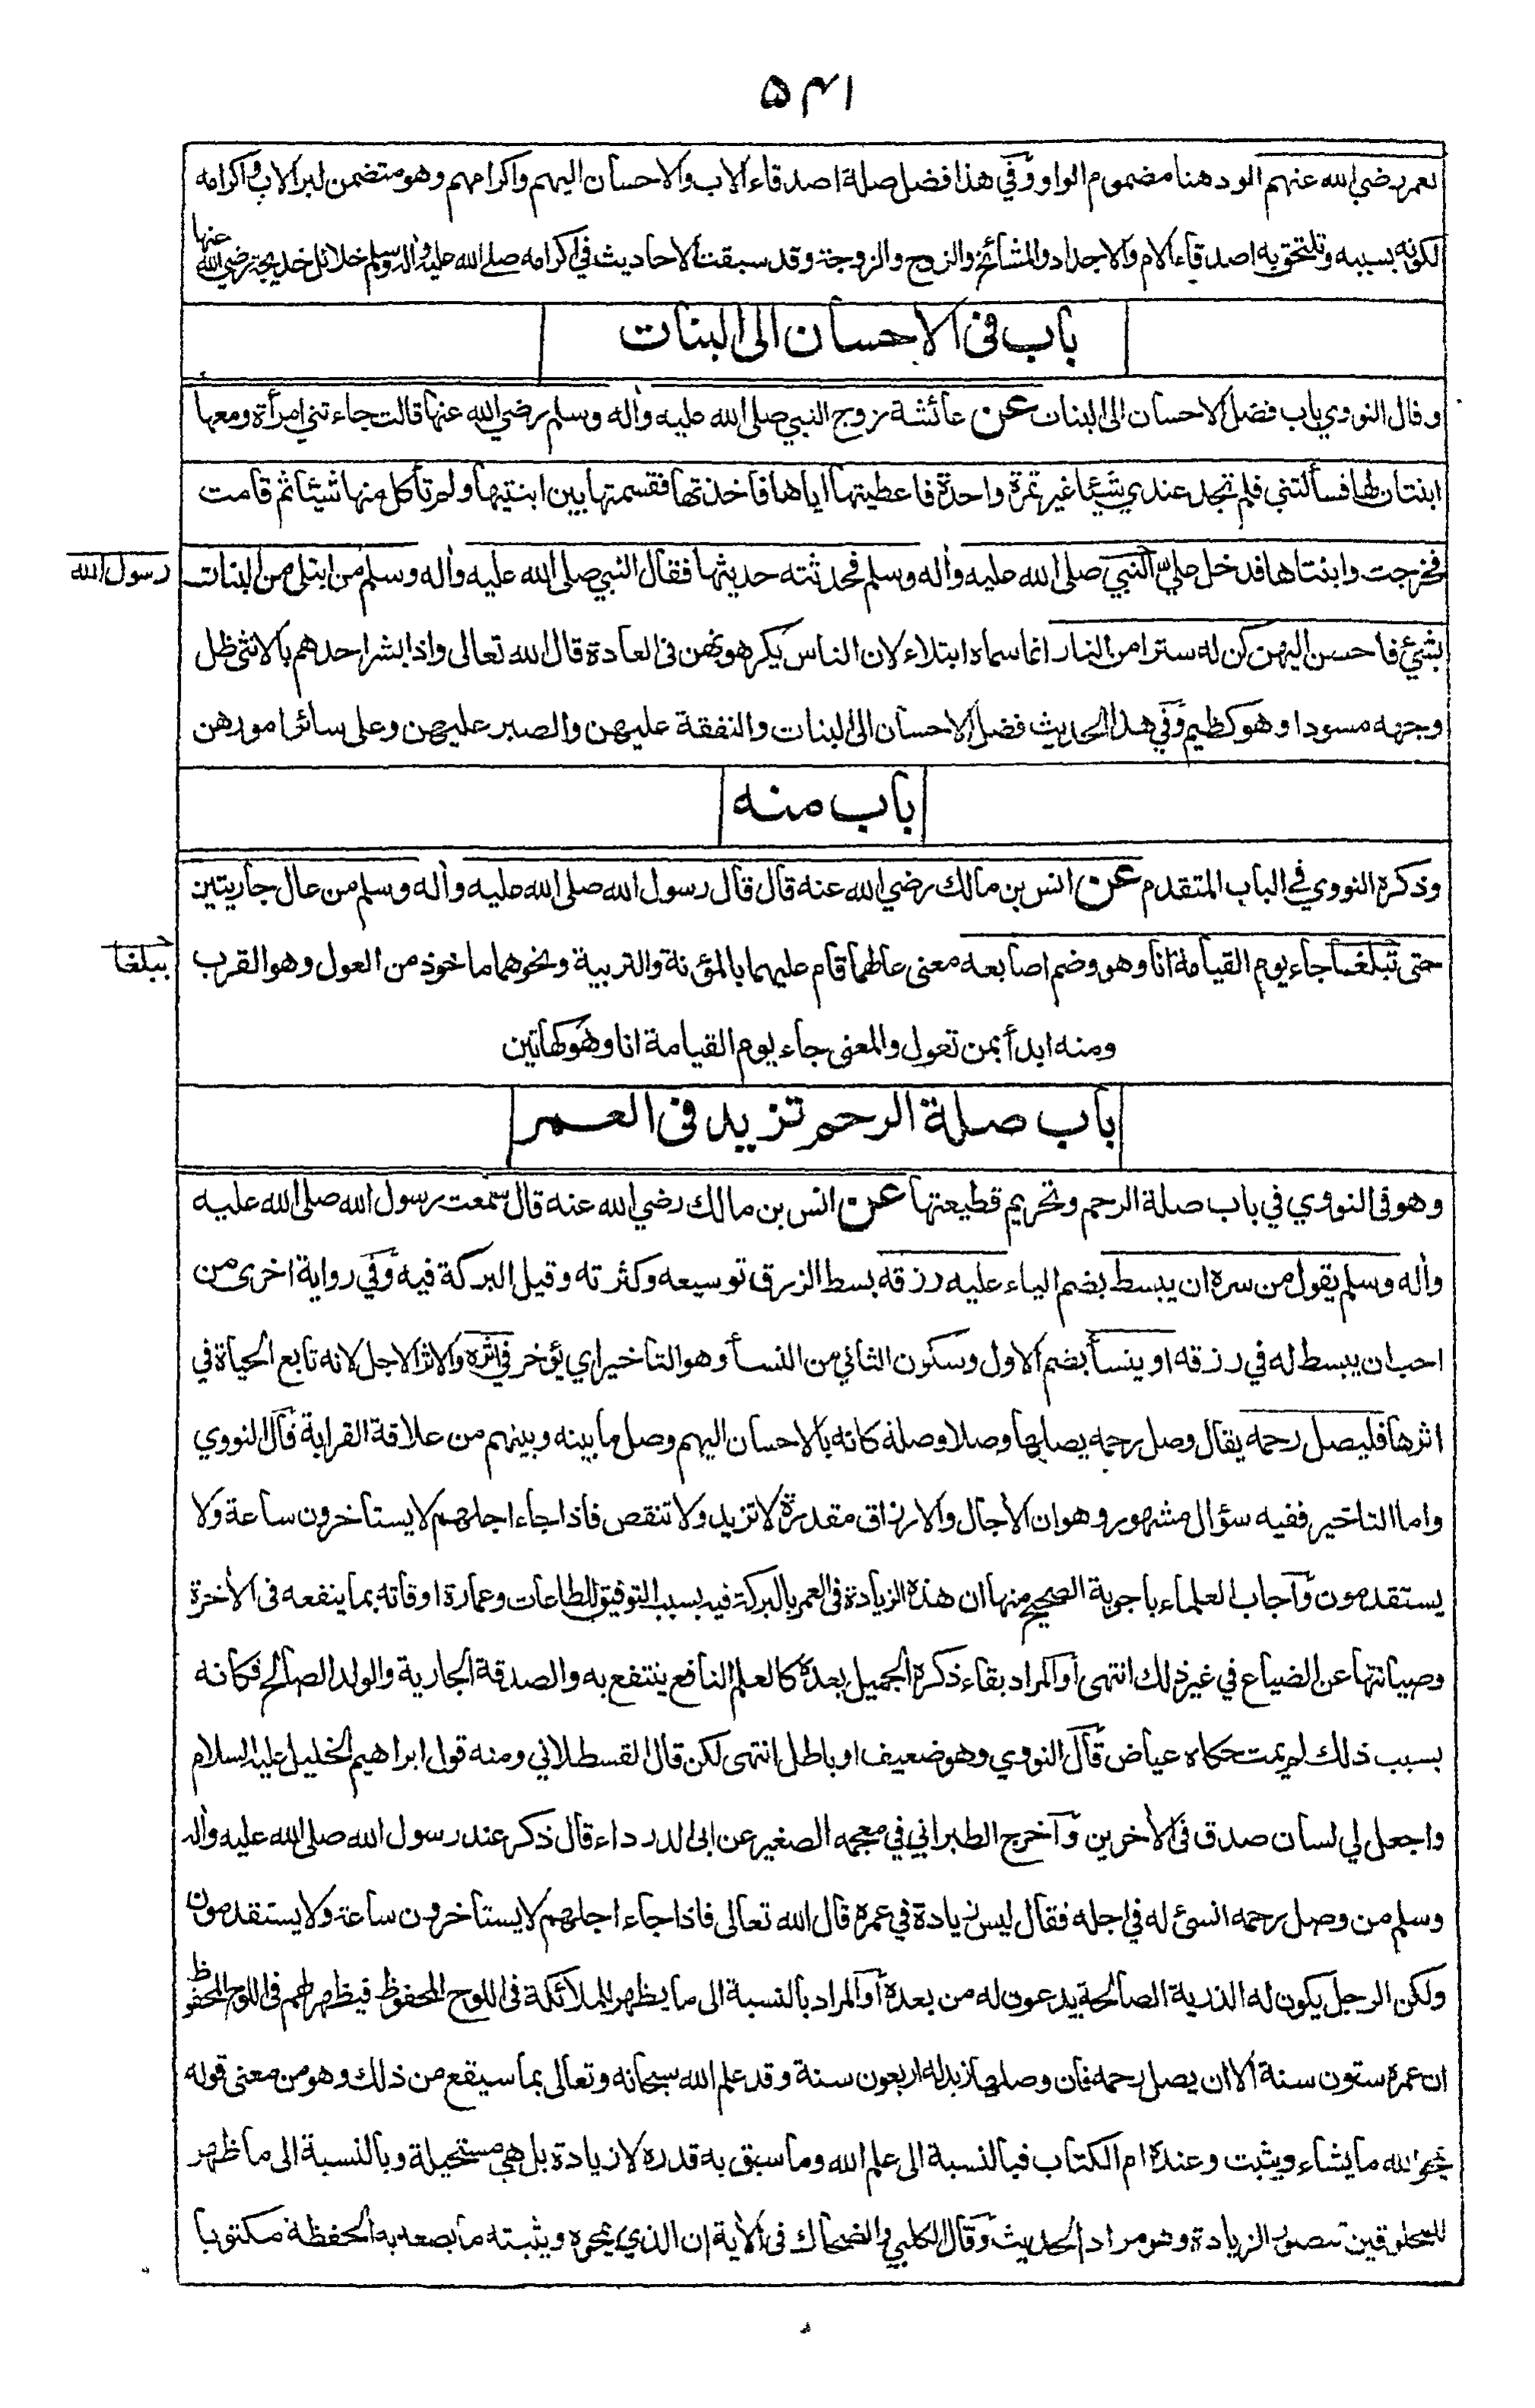 ۵۴۱
لعمر رضي الله عنهم الود هنا مضموم الواو وفي هذا فضل صلة اصدقاء الاب والاحسان اليهم واكرامهم وهو متضمن لبر الاب واكرامه
لكونه بسببه وتلتحق به اصدقاء الام والاجداد والمشائخ والزوج والزوجة وقد سبقت الاحاديث في اكرامه صلى الله عليه واٰله وسلم خلائل خديجة رضي الله عنها
باب فى الاحسان الى البنات
وقال النووي باب فضل الاحسان الى البنات عن عائشة زوج النبي صلى الله عليه واٰله وسلم رضي الله عنها قالت جاءتني امرأة ومعها
ابنتان لها فسألتني فلم تجد عندي شيئا غير تمرة واحدة فاعطيتها اياها فاخذتها فقسمتها بين ابنتيها ولم تأكل منها شيئا ثم قامت
فخرجت وابنتاها فدخل علي النبي صلى الله عليه واٰله وسلم فحدثته حديثها فقال النبي صلى الله عليه واٰله وسلم من ابتلى من البنات
رسول الله
بشئ فاحسن اليهن كن له سترا من النار انما سماه ابتلاء لان الناس يكرهونهن فى العادة قال الله تعالى واذا بشر احدهم بالانثى ظل
وجهه مسودا وهو كظيم وفي هذا الحديث فضل الاحسان الى البنات والنفقة عليهن والصبر عليهن وعلى سائر امورهن
باب منه
وذكره النووي في الباب المتقدم عن انس بن مالك رضي الله عنه قال قال رسول الله صلى الله عليه واٰله وسلم من عال جاريتين
حتى تبلغا جاء يوم القيامة انا وهو وضم اصابعه معنى عالهما قام عليهما بالمؤنة والتربية ونحوهما ماخوذ من العول وهو القرب
يبلغا
ومنه ابدأ بمن تعول والمعنى جاء يوم القيامة انا وهو كهاتين
باب صلة الرحم تزيد فى العمر
وهو فى النووي في باب صلة الرحم وتحريم قطيعتها عن انس بن مالك رضي الله عنه قال سمعت رسول الله صلى الله عليه
واٰله وسلم يقول من سره ان يبسط بضم الياء عليه رزقه بسط الرزق توسيعه وكثرته وقيل البركة فيه وفي رواية اخرى من
احب ان يبسط له في رزقه او ينسأ بضم الاول وسكون الثاني من النسأ وهو التأخير اي يؤخر في اثره والاثر الاجل لانه تابع الحياة في
اثرها فليصل رحمه يقال وصل رحمه يصلها وصلا وصلة كانه بالاحسان اليهم وصل ما بينه وبينهم من علاقة القرابة قال النووي
واما التاخير ففيه سؤال مشهور وهو ان الاٰجال والارزاق مقدرة لا تزيد ولا تنقص فاذا جاء اجلهم لا يستأخرون ساعة ولا
يستقدمون وأجاب العلماء باجوبة الصحيح منها ان هذه الزيادة فى العمر بالبركة فيه بسبب التوفيق للطاعات وعمارة اوقاته بما ينفعه فى الاٰخرة
وصيانتها عن الضياع في غير ذلك انتهى او المراد بقاء ذكره الجميل بعده كالعلم النافع ينتفع به والصدقة الجارية والولد الصالح فكانه
بسبب ذلك لم يمت حكاه عياض قال النووي وهو ضعيف او باطل انتهى لكن قال القسطلاني ومنه قول ابراهيم الخليل عليه السلام
واجعل لي لسان صدق فى الاٰخرين وأخرج الطبراني في معجمه الصغير عن ابى الدرداء قال ذكر عند رسول الله صلى الله عليه واٰله
وسلم من وصل رحمه انسئ له في اجله فقال ليس زيادة في عمره قال الله تعالى فاذا جاء اجلهم لا يستأخرون ساعة ولا يستقدمون
ولكن الرجل يكون له الذرية الصالحة يدعون له من بعده او المراد بالنسبة الى ما يظهر للملائكة فى اللوح المحفوظ فيظهر لهم فى اللوح المحفوظ
ان عمره ستون سنة الا ان يصل رحمه فان وصلها زيد له اربعون سنة وقد علم الله سبحانه وتعالى بما سيقع من ذلك وهو من معنى قوله
يمحو الله ما يشاء ويثبت وعنده ام الكتاب فبالنسبة الى علم الله وما سبق به قدره لا زيادة بل هي مستحيلة وبالنسبة الى ما ظهر
للمخلوقين تتصور الزيادة وهو مراد الحديث وقال الكلبي والضحاك فى الاٰية ان الذي يمحوه ويثبته ما يصعد به الحفظة مكتوبا